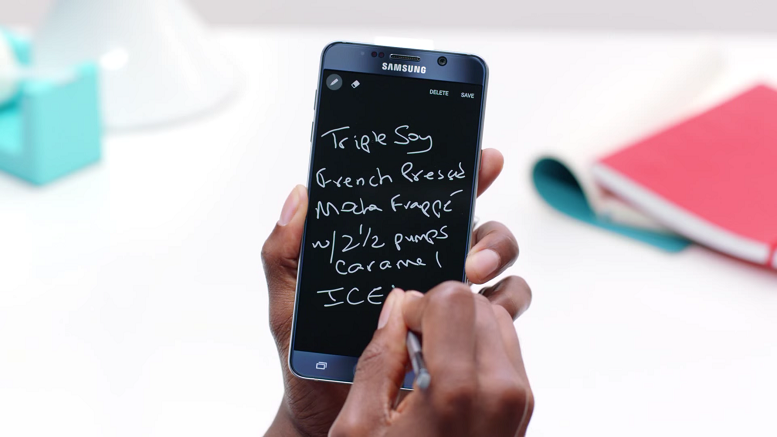 SAMSUNG
DELETE SAVE
Triple Soy
French Pressé
Mocha Frappé
w/ 2 1/2 pumps
caramel
ICE